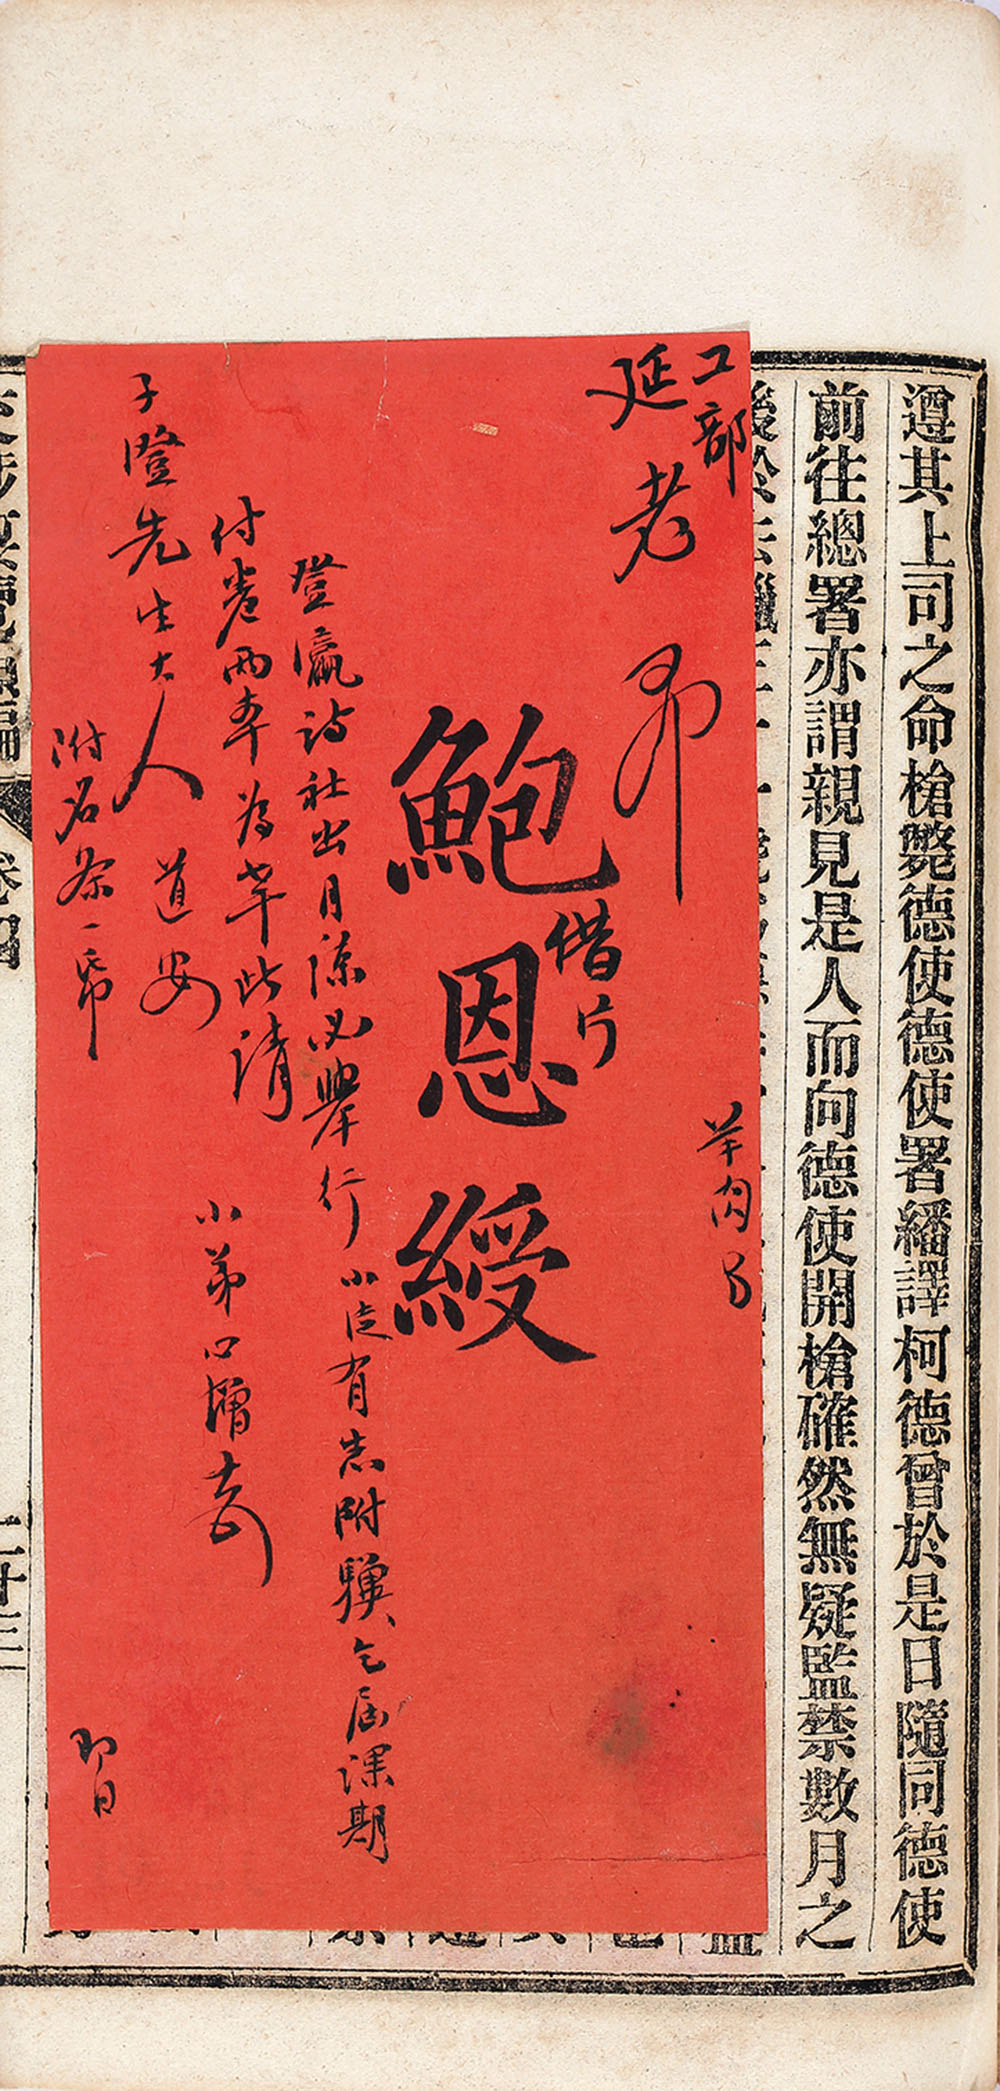 遵其上司之命槍斃德使德使署繙譯柯德曾於是日隨同德使
前往總署亦謂親見是人而向德使開槍確然無疑監禁數月之
工部
延老爷
羊肉
借片
鮑恩綬
登瀛詩社出月諒必舉行小徒有志附驥乞屆課期
付卷兩本為幸此請
子澄先生大人道安
小弟心增
附名條一紙
即日